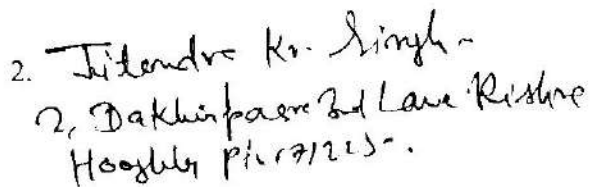 2. Jitendra Kr. Singh -
2, Dakhinpara 3rd Lane Rishra
Hooghly Pin